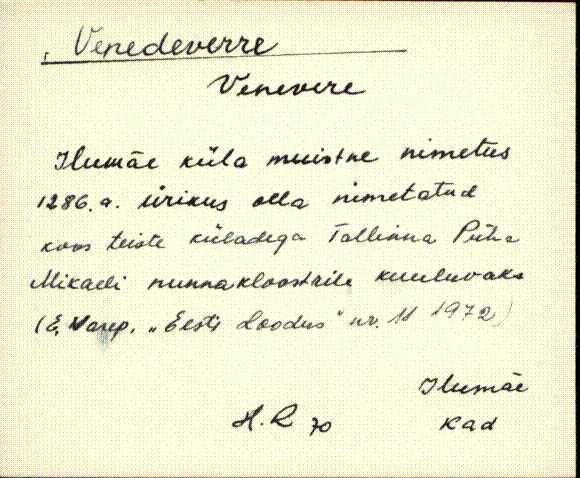 Venedeverre
Venevere
Ilumäe küla muistne nimetus
1286.a. ürikus olla nimetatud
koos teiste küladega Tallinna Püha
Mikaeli nunnakloostrile kuuluvaks
(E. Varep. „Eesti Loodus" nr. 11 1972)
Ilumäe
H. R 70 Kad